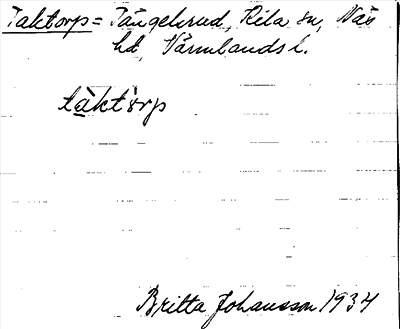 Taktorp = Tängelsrud, Kila sn, Näs
hd, Värmlands l.
tàktòrp
Britta Johansson 1934